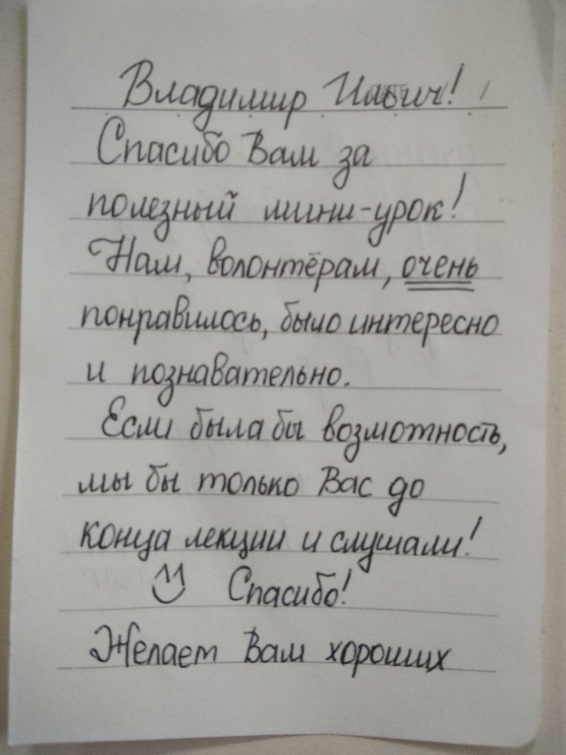 Владимир Ильич!
Спасибо Вам за
полезный мини-урок!
Нам, волонтёрам, очень
понравилось, было интересно
и познавательно.
Если была бы возмотность,
мы бы только Вас до
конца лекции и слушали!
Спасибо!
Желает Вам хороших